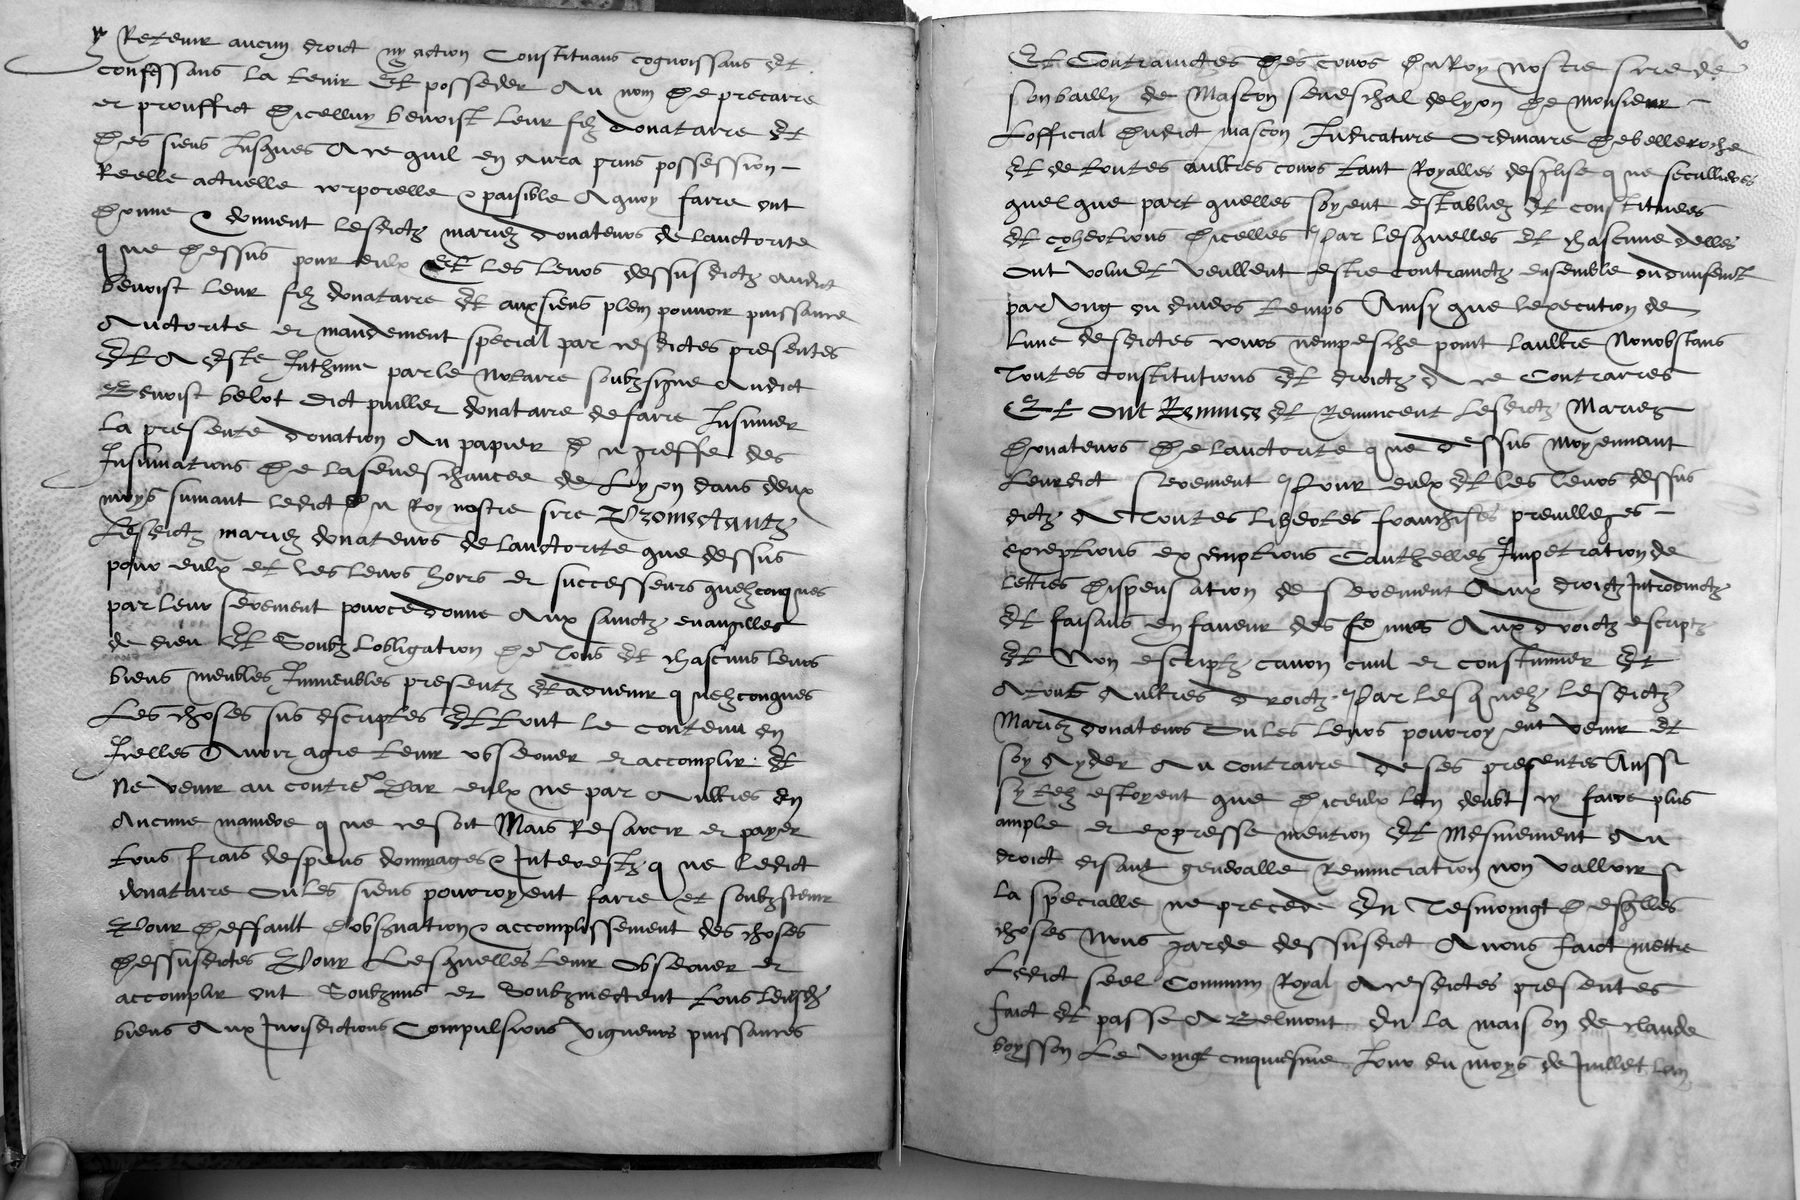 y Retenir aucun droict ny action Constituans cognoissans Et
confessans la tenir Et posseder Au nom De precaire
et prouffict Dicelluy benoist leur filz donataire Et
Des siens Jusques A ce quil en aura prins possession
Reelle actuelle corporelle & paisible A quoy faire ont
Donne & donnent lesdictz mariez donateurs de lauctorite
que Dessus pour eulx Et les leurs dessusdictz audict
benoist leur filz donataire Et aux siens plein pouvoir puissance
Auctorite et mandement special par cesdictes presentes
Et A Este Inthime par le Notaire soubzsigne Audict
Benoist belot dict puillet donataire de faire Insinuer
La presente donation Au papier Du greffe des
Insinuations De la seneschancee de Lyon dans deux
moys suivant ledict Du Roy nostre sire Promectantz
Lesdictz mariez donateurs de lauctorite que dessus
pour eulx et les leurs hoirs et successeurs quelzconques
par leur serement pource donne Aux sainctz evangilles
de dieu Et Soubz Lobligation De Tous Et chascuns leurs
biens meubles Immeubles presentz Et advenir quelzconques
Les choses sus escriptes Et tout le contenu en
Icelles Avoir agre tenir observer et accomplir Et
Ne venir au contre Par eulx ne par Aultres En
Aucune maniere que ce soit Mais Resarcir et payer
tous frais despens dommages & Interestz que ledict
donataire Ou les siens pourroyent faire et soubzstenir
Pour Deffault Dobservation & accomplissement des choses
Dessusdictes Pour Lesquelles tenir Observer et
accomplir ont Soubzmis et Soubzmectent tous leursdictz
biens Aux Jurisdictions Compulsions Vigueurs puissances
Et Contrainctes Des cours Du Roy Nostre sire de
son bailly de Mascon seneschal de lyon De Monsieur
Lofficial Dudict mascon Judicature Ordinaire De belleroche
Et de toutes aultres cours tant Royalles desglise que secullieres
quelque part quelles soyent establiez Et constituees
Et cohertions Dicelles Par Lesquelles Et chascune delles
Ont volu Et veullent estre contrainctz ensemble ou
par Ung ou divers temps Ainsy que lexecution de
Lune desdictes cours nempesche point laultre Nonobstans
Toutes Constitutions Et droictz A ce Contraires
Et Ont Renunce Et Renuncent Lesdictz Mariez
Donateurs De lauctorite que Dessus moyennant
Leurdict serement Pour eulx Et les leurs dessus
dictz A Toutes Libertes franchises previlleges
exceptions exemptions Cauthelles Impetration de
Lettres Dispensation de serement Aux droictz Introduictz
Et faisans en faveur des femmes Aux droictz escriptz
Et Non escriptz canon civil et constumier Et
A tous Aultres Droictz Par lesquelz Lesdictz
Mariez donateurs Ou les leurs pourroyent venir Et
soy Ayder Au contraire de ses presentes Aussi
sy telz estoyent que Diceulx len deubt cy faire plus
ample et expresse mention Et Mesmement Au
droict disant generalle Renunciation non valloir si
la specialle ne precede En Tesmoingt Desquelles
choses Nous garde dessusdict Avons faict mettre
Ledict seel Commun Royal A cesdictes presentes
faict Et passe A Belmont En la maison de claude
boysson Le vingt cinquiesme Jour du moys de Juillet lan